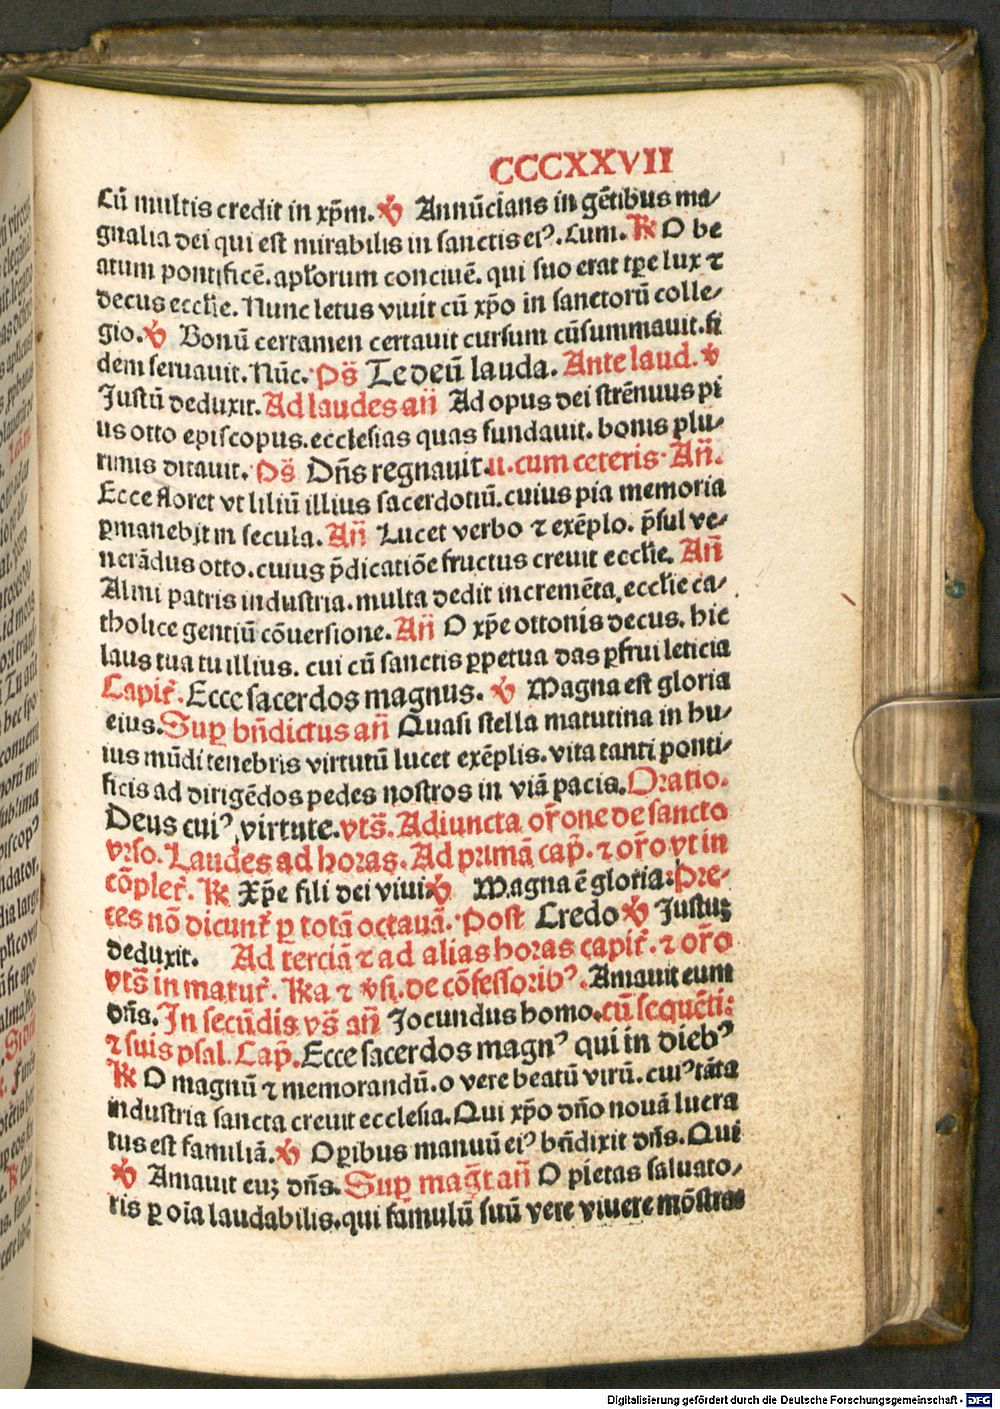 CCCXXVII
Cũ multis credit in xp̃m. ℣ Annũcians in gẽtibus ma⸗
gnalia dei qui est mirabilis in sanctis eiꝰ. Cum. ℟ O be
atum pontificẽ. apl'orum conciuẽ. qui suo erat tp̃e lux ⁊
decus eccl'ie. Nunc letus viuit cũ xp̃o in sanctorũ colle⸗
gio. ℣ Bonũ certamen certauit cursum cũsummauit. fi
dem seruauit. Nũc. Ps̃ Te deũ lauda. Ante laud. ℣
Justũ deduxit. Ad laudes añ Ad opus dei strẽnuus pi
us otto episcopus. ecclesias quas fundauit. bonis plu⸗
rimis ditauit. Ps̃ Dñs regnauit. u. cum ceteris. Añ.
Ecce floret vt liliũ illius sacerdotiũ. cuius pia memoria
ꝑmanebit in secula. Añ Lucet verbo ⁊ exẽplo. p̃sul ve⸗
nerãdus otto. cuius p̃dicatiõe fructus creuit eccl'ie. Añ
Almi patris industria. multa dedit incremẽta, eccl'ie ca⸗
tholice gentiũ cõuersione. Añ O xp̃e ottonis decus. hic
laus tua tu illius. cui cũ sanctis ꝑpetua das ꝑfrui leticia
Capit'. Ecce sacerdos magnus. ℣ Magna est gloria
eius. Suꝑ bñdictus añ Quasi stella matutina in hu⸗
ius mũdi tenebris virtutũ lucet exẽplis. vita tanti ponti⸗
ficis ad dirigẽdos pedes nostros in viã pacis. Oratio.
Deus cuiꝰ virtute. vts̃. Adiuncta or̃one de sancto
vrso. Laudes ad horas. Ad primã cap̃. ⁊ or̃o vt in
cõplet'. ℟ Xp̃e fili dei viui ℣ Magna ẽ gloria. Pre⸗
ces nõ dicunt' ꝑ totã octauã. Post Credo ℣ Justuꝫ
deduxit. Ad terciã ⁊ ad alias horas capit'. ⁊ or̃o
vts̃ in matut'. ℟a ⁊ ℣si. de cõfessoribꝰ. Amauit eum
dñs. In secũdis vs̃ añ Jocundus homo. cũ sequẽti:
⁊ suis psal. Cap̃. Ecce sacerdos magnꝰ qui in diebꝰ
℟ O magnũ ⁊ memorandũ. o vere beatũ virũ. cuiꝰ tãta
industria sancta creuit ecclesia. Qui xp̃o dño nouã lucra
tus est familiã. ℣ Oꝑibus manuũ eiꝰ bñdixit dñs. Qui
℣ Amauit euꝫ dñs. Suꝑ mag̃t añ O pietas saluato⸗
ris ꝑ oĩa laudabilis. qui famulũ suũ vere viuere mõstras
Digitalisierung gefördert durch die Deutsche Forschungsgemeinschaft - DFG